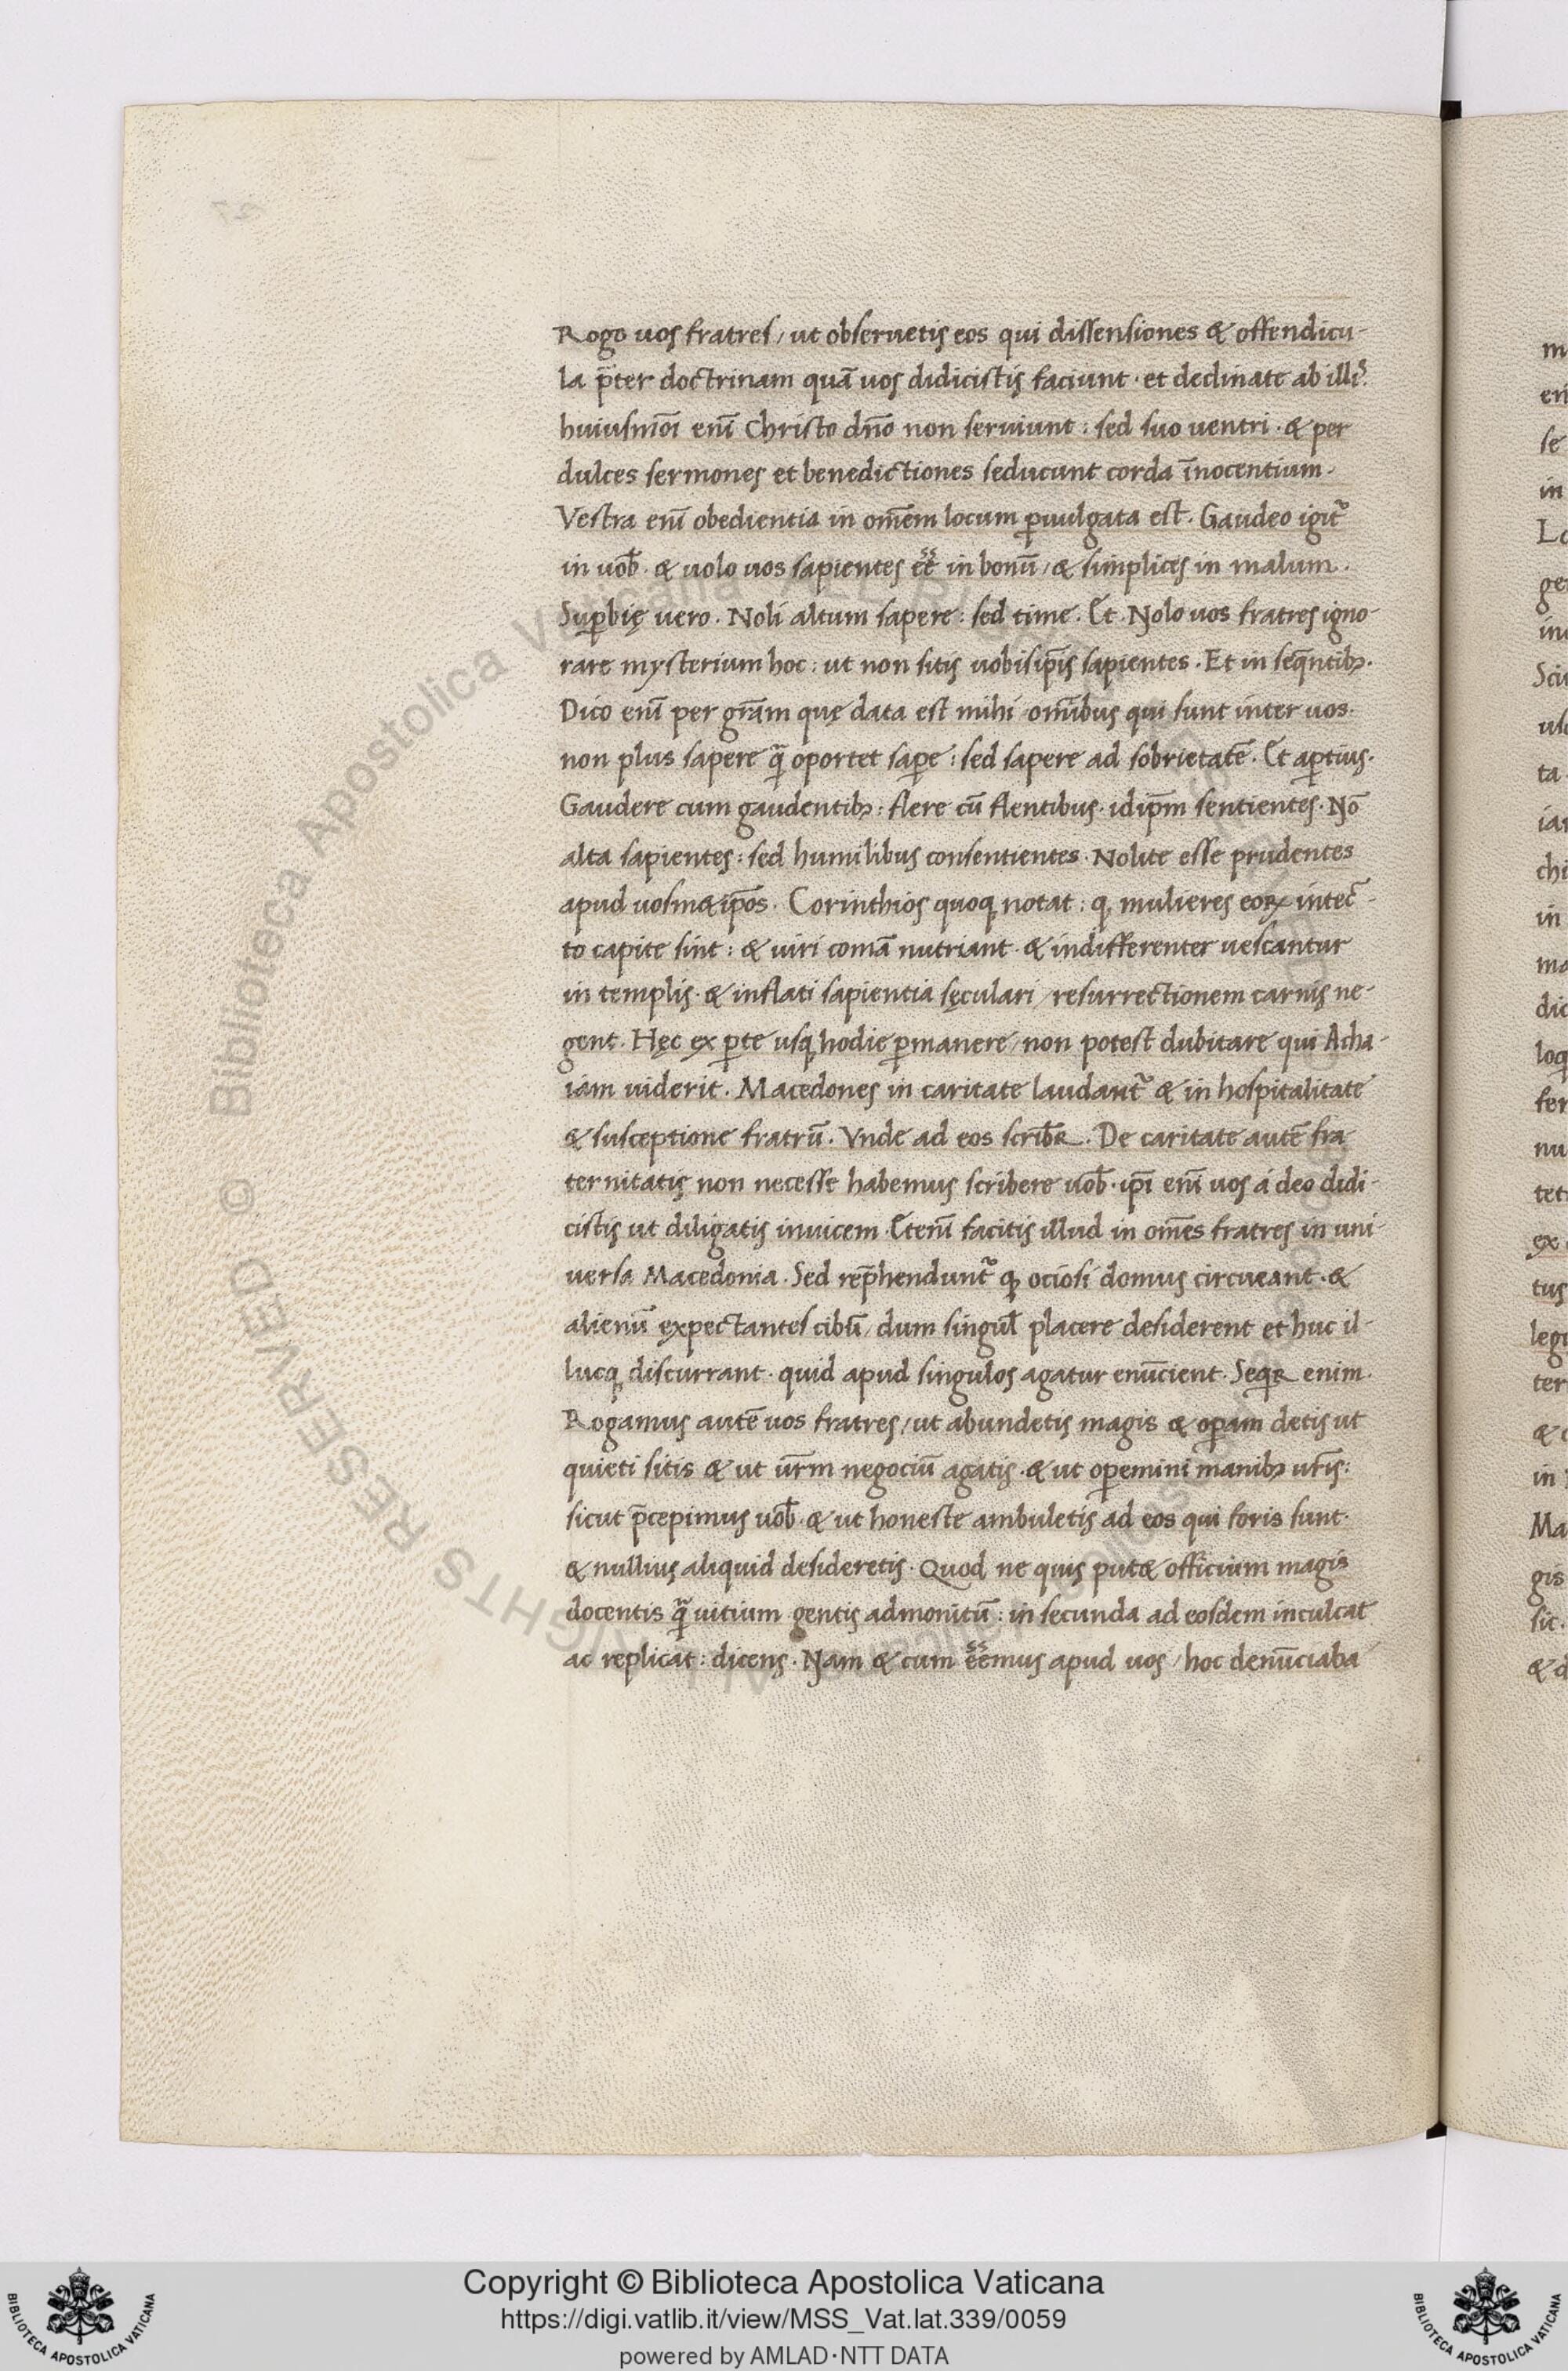 Rogo uos fratres / ut obseruetis eos qui dissensiones & offendicu-
la p̄ter doctrinam quā uos didicistis faciunt · et declinate ab illis.
huiusmōi enī Christo dn̄o non seruiunt : sed suo uentri · & per
dulces sermones et benedictiones seducunt corda īnocentium.
Vestra enī obedientia in om̄em locum ꝑuulgata est. Gaudeo igit᷑
in uob̄. & uolo uos sapientes eē in bonū / & simplices in malum.
Suꝑbię uero. Noli altum sapere : sed time. Et. Nolo uos fratres igno-
rare mysterium hoc : ut non sitis uobisip̄is sapientes. Et in seq̄ntibꝫ.
Dico enī per grām quę data est mihi omībus qui sunt inter uos.
non plus sapere q̄ oportet saꝑe : sed sapere ad sobrietatē. Et aꝑtius.
Gaudere cum gaudentibꝫ : flere cū flentibus · idip̄m sentientes. Nō
alta sapientes : sed humilibus consentientes. Nolite esse prudentes
apud uosm&ip̄os. Corinthios quoqꝫ notat : ꝙ mulieres eoꝝ intec-
to capite sint : & uiri comā nutriant · & indifferenter uescantur
in templis · & inflati sapientia sęculari / resurrectionem carnis ne-
gent. Hęc ex ꝑte usqꝫ hodie ꝑmanere / non potest dubitare qui Acha-
iam uiderit. Macedones in caritate laudant᷑ & in hospitalitate
& susceptione fratrū. Vnde ad eos scribꝶ. De caritate autē fra
ternitatis non necesse habemus scribere uob̄ · ip̄i enī uos á deo didi-
cistis ut diligatis inuicem. Etenī facitis illud in om̄es fratres in uni-
uersa Macedonia. Sed rep̄hendunt᷑ ꝙ ociosi domus circueant · &
alienū expectantes cibū / dum singul̄ placere desiderent et huc il-
lucqꝫ discurrant · quid apud singulos agatur enūcient. Seqꝶ enim.
Rogamus autē uos fratres / ut abundetis magis & oꝑam detis ut
quieti sitis & ut ur̄m negociū agatis · & ut oꝑemini manibꝫ ur̄is :
sicut p̄cepimus uob̄ · & ut honeste ambuletis ad eos qui foris sunt ·
& nullius aliquid desideretis. Quod ne quis put& officium magis
docentis q̄ uitium gentis admonitū : in secunda ad eosdem inculcat
ac replicat : dicens. Nam & cum eēmus apud uos / hoc denūciaba
m
en
se
in
Lo
ge
in
Sci
ul
ta
iar
chi
in
ma
dic
loq
fer
nu
tet
ex
tus
legi
ter
& 
in
Ma
gis
sic.
& d
© Biblioteca Apostolica Vaticana ALL RIGHTS RESERVED
Copyright © Biblioteca Apostolica Vaticana
https://digi.vatlib.it/view/MSS_Vat.lat.339/0059
powered by AMLAD·NTT DATA
BIBLIOTECA APOSTOLICA VATICANA
BIBLIOTECA APOSTOLICA VATICANA